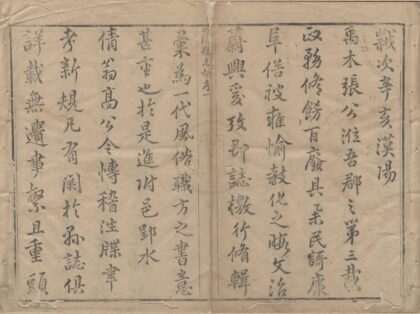 歲次辛亥漢陽
禹木張公涖吾郡之第三載
政務修飭百廢具舉民謌康
阜偕被雍愉教化之暇文治
蔚興爰攷郡誌檄行脩輯
彙為一代風俗職方之書意
甚重也於是進所邑郢水
倩翁高公令博稽注牒聿
考新規凡有関於孫誌俱
詳載無遺事繫且重頭